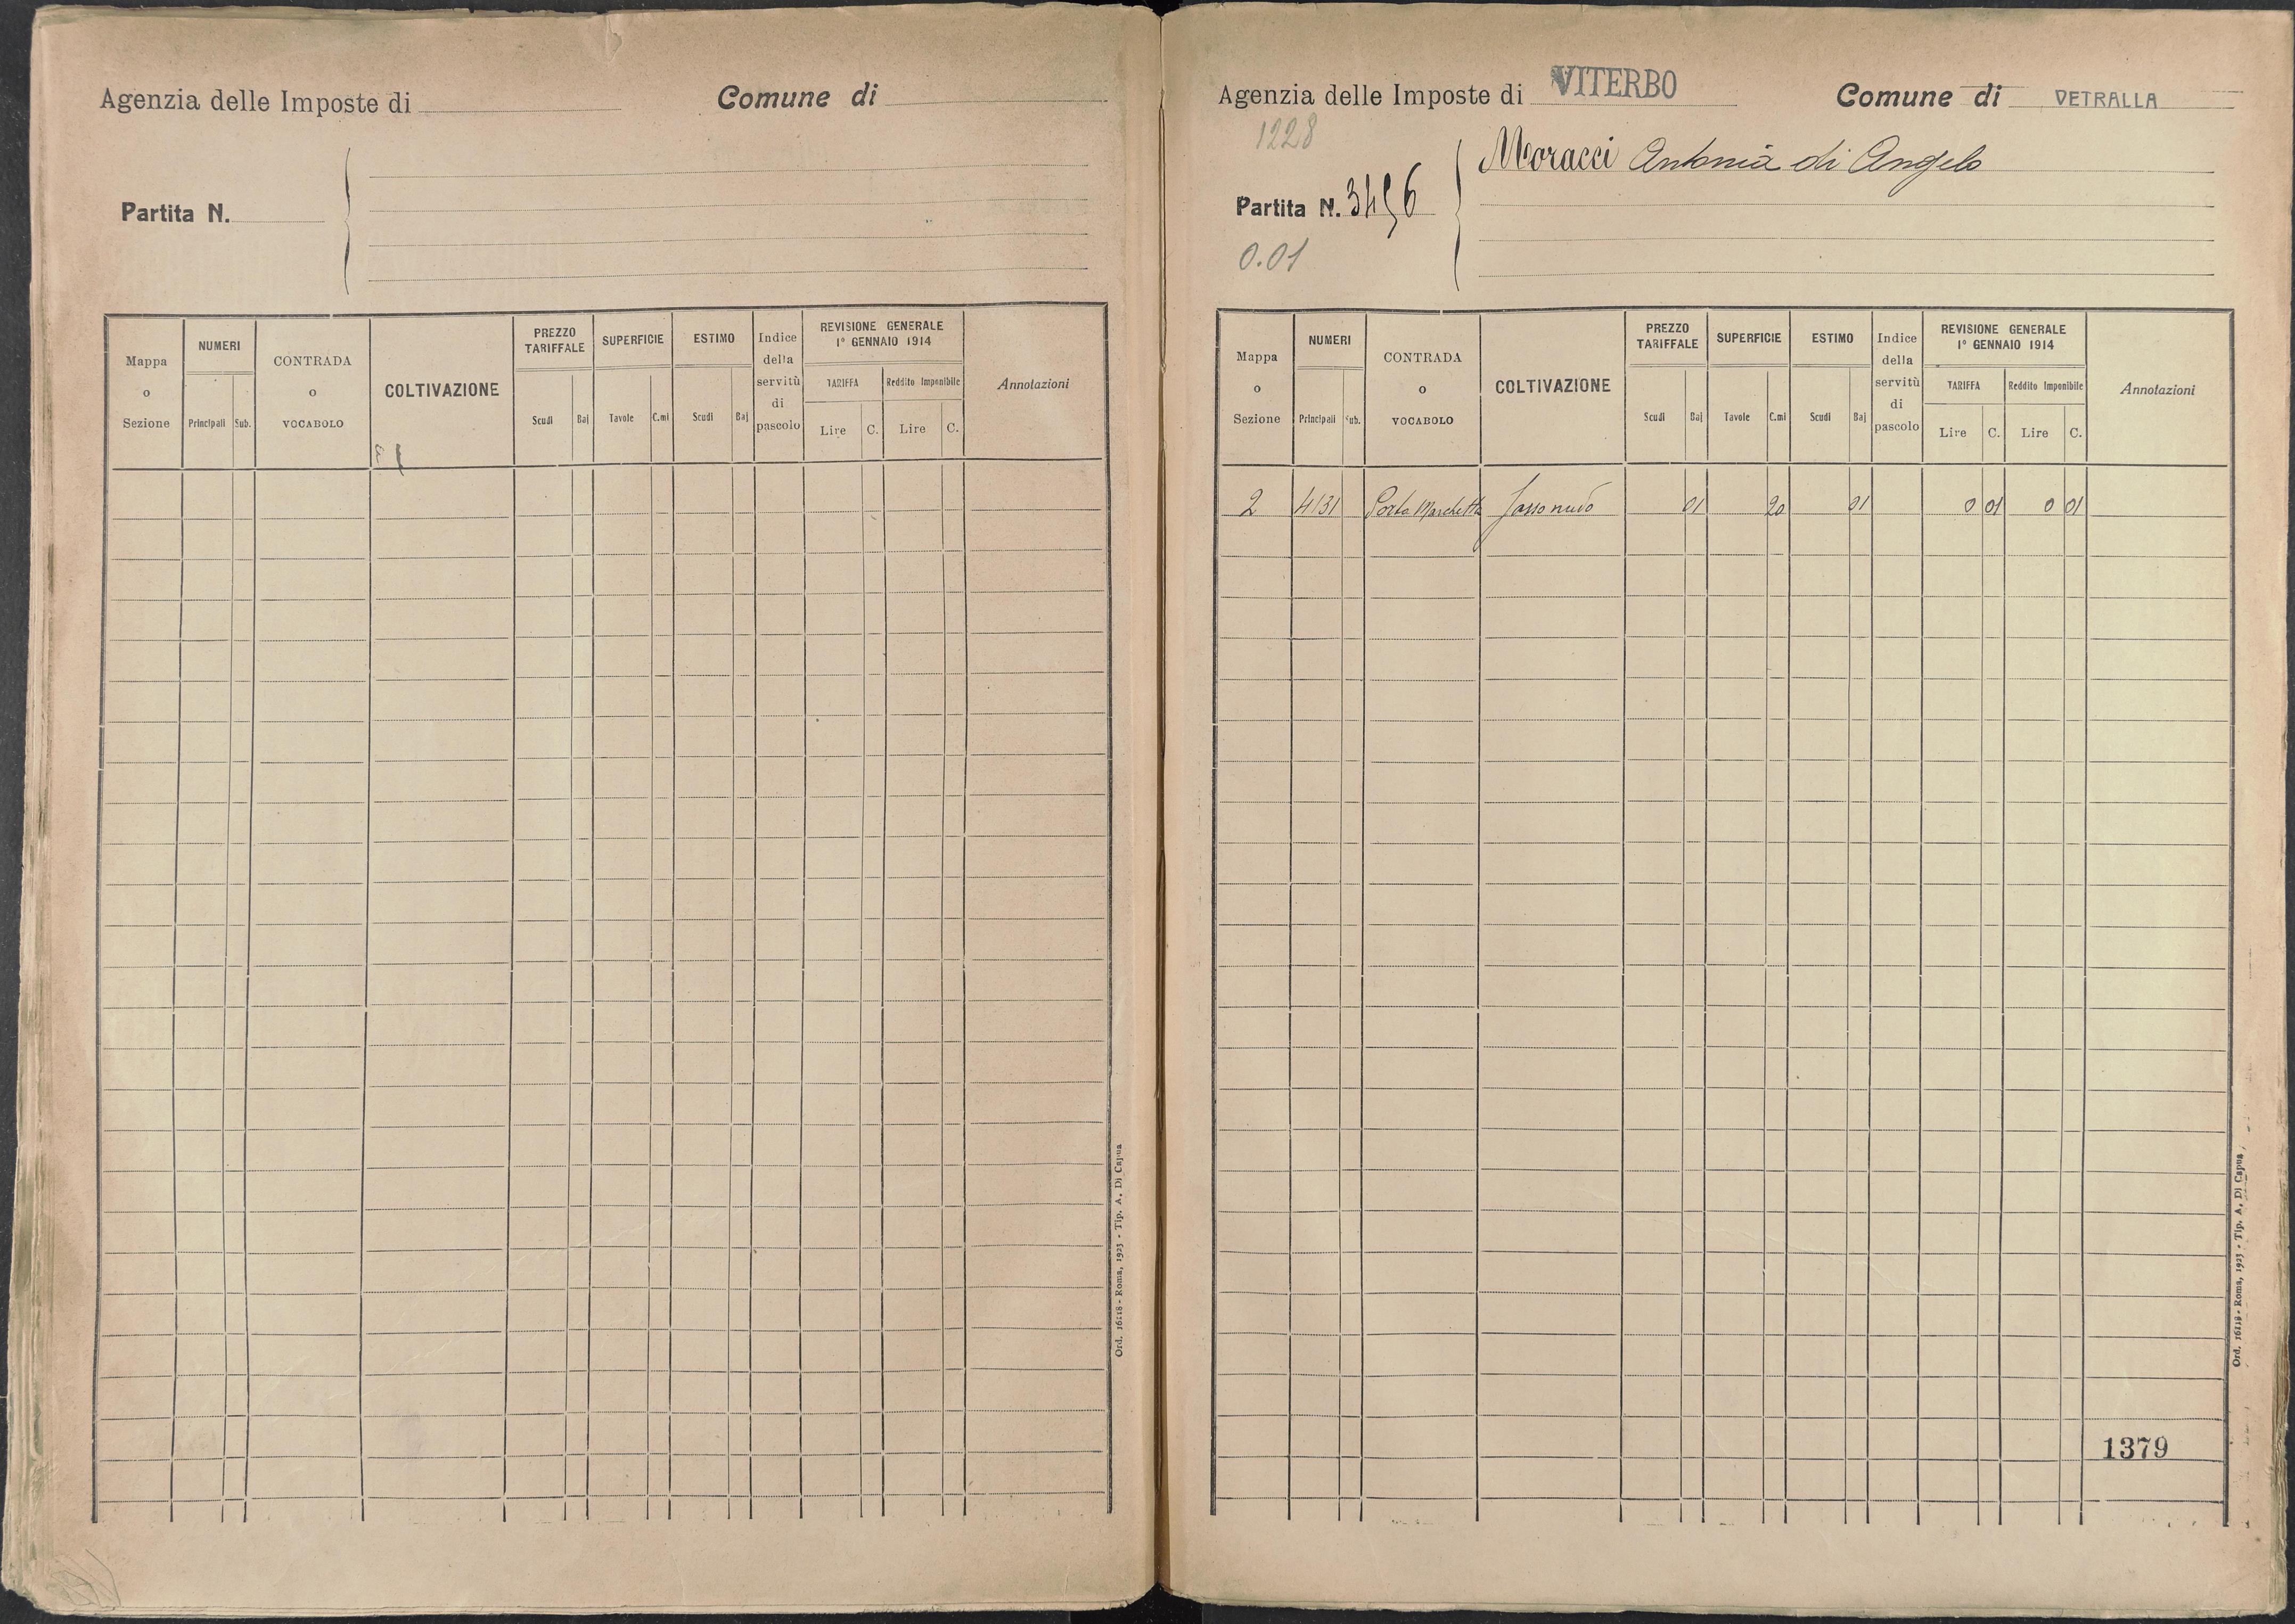 Agenzia delle Imposte di
Comune di
Partita N.
Mappa o Sezione
NUMERI
Principali Sub.
CONTRADA o VOCABOLO
COLTIVAZIONE
PREZZO TARIFFALE
Scudi Baj
SUPERFICIE
Tavole C.mi
ESTIMO
Scudi Baj
Indice della servitù di pascolo
REVISIONE GENERALE
1° GENNAIO 1914
TARIFFA
Lire C.
Reddito Imponibile
Lire C.
Annotazioni
Ord. 16118 - Roma, 1923 - Tip. A. Di Capua
Agenzia delle Imposte di VITERBO
Comune di VETRALLA
1228
Moracci Antonia di Angelo
Partita N. 3456
0.01
Mappa o Sezione
NUMERI
Principali Sub.
CONTRADA o VOCABOLO
COLTIVAZIONE
PREZZO TARIFFALE
Scudi Baj
SUPERFICIE
Tavole C.mi
ESTIMO
Scudi Baj
Indice della servitù di pascolo
REVISIONE GENERALE
1° GENNAIO 1914
TARIFFA
Lire C.
Reddito Imponibile
Lire C.
Annotazioni
2 4131 Porta Marchetta Sasso nudo 01 20 01 0 01 0 01
1379
Ord. 16118 - Roma, 1923 - Tip. A. Di Capua